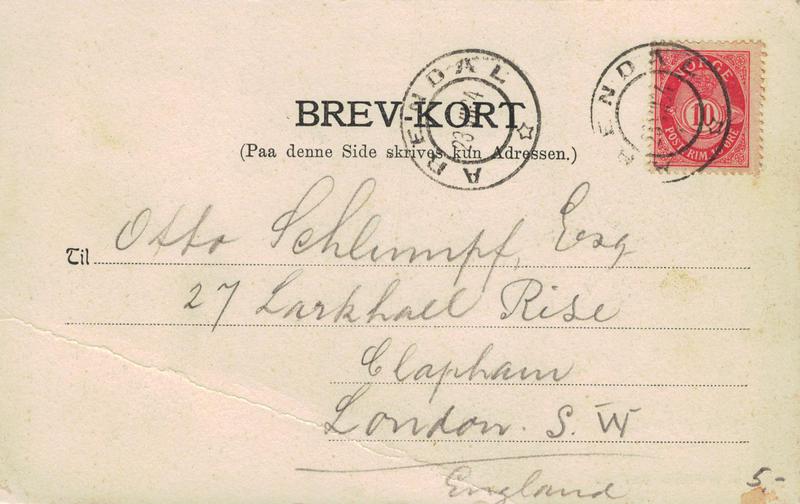 BREV-KORT
(Paa denne Side skrives kun Adressen.)
ARENDAL
ARENDAL
NORGE
10
POSTFRIM 10 ØRE
Til Otto Schlumpf, Esq
27 Larkhall Rise
Clapham
London. S. W
England
5.-